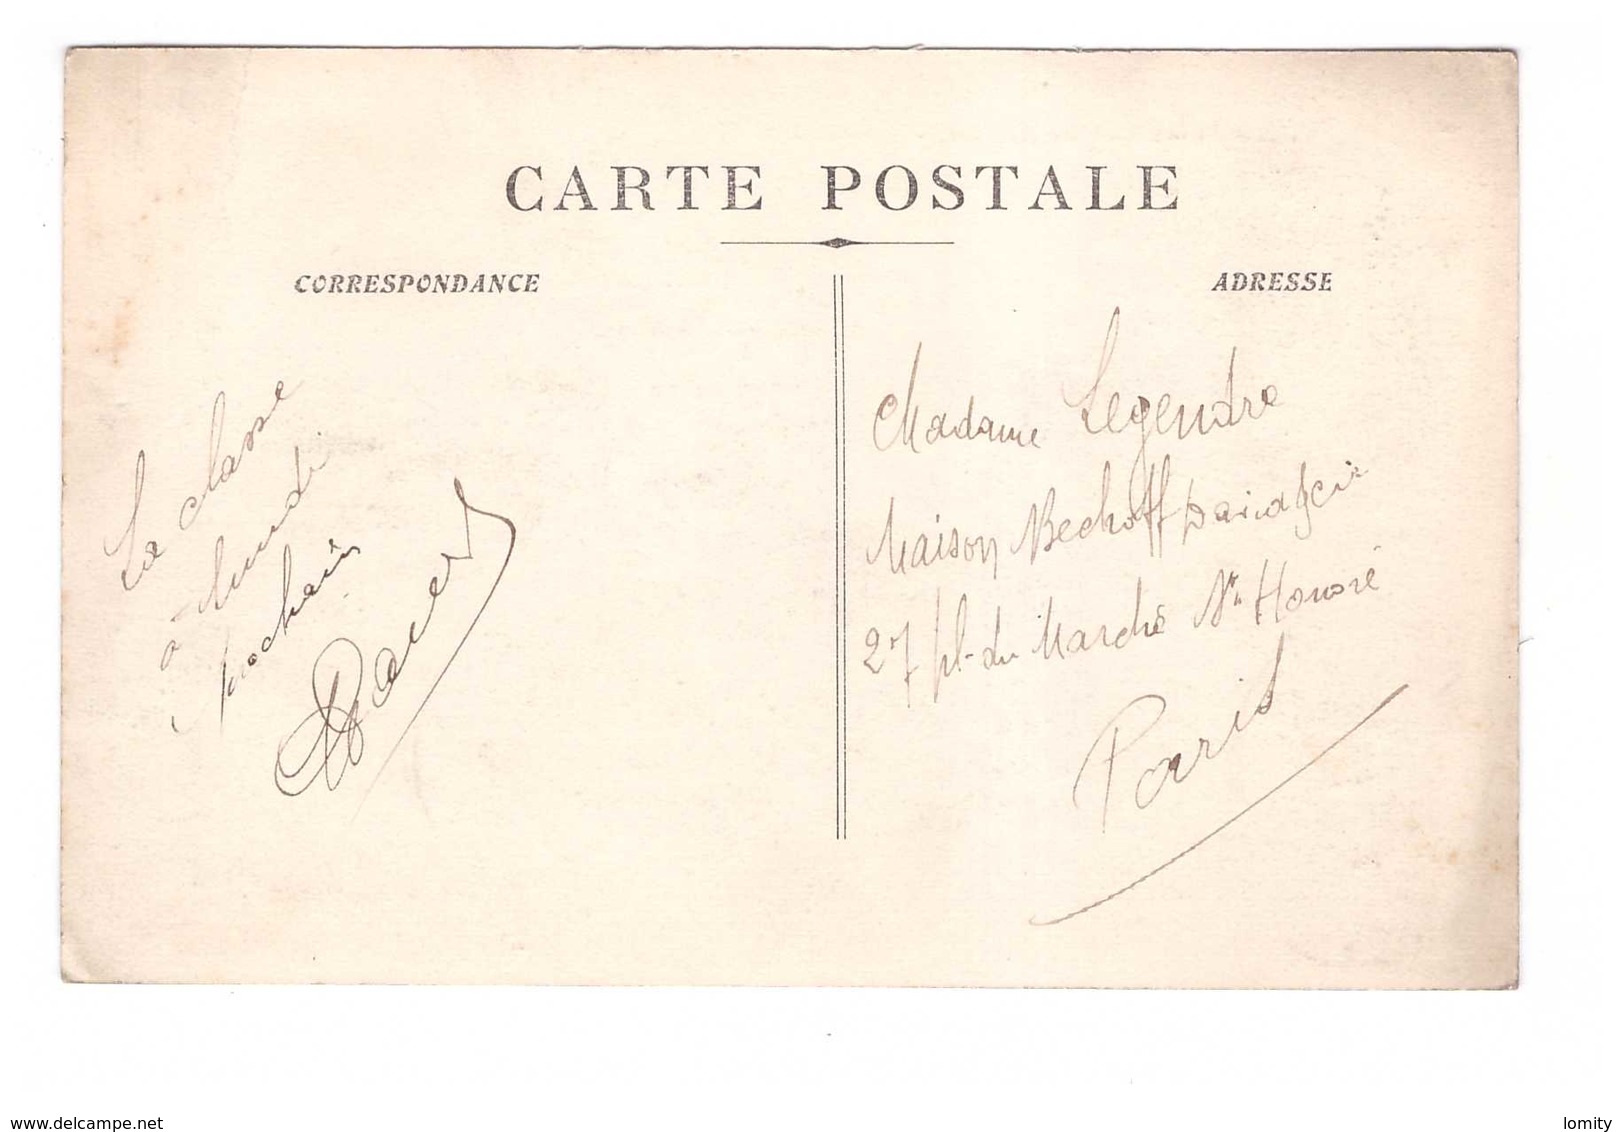 CARTE POSTALE
CORRESPONDANCE
ADRESSE
La classe
à lundi
prochain
Madame Legendre
Maison Bechoff David &amp; Cie
27 pl. du Marché St Honoré
Paris
www.delcampe.net
lomity